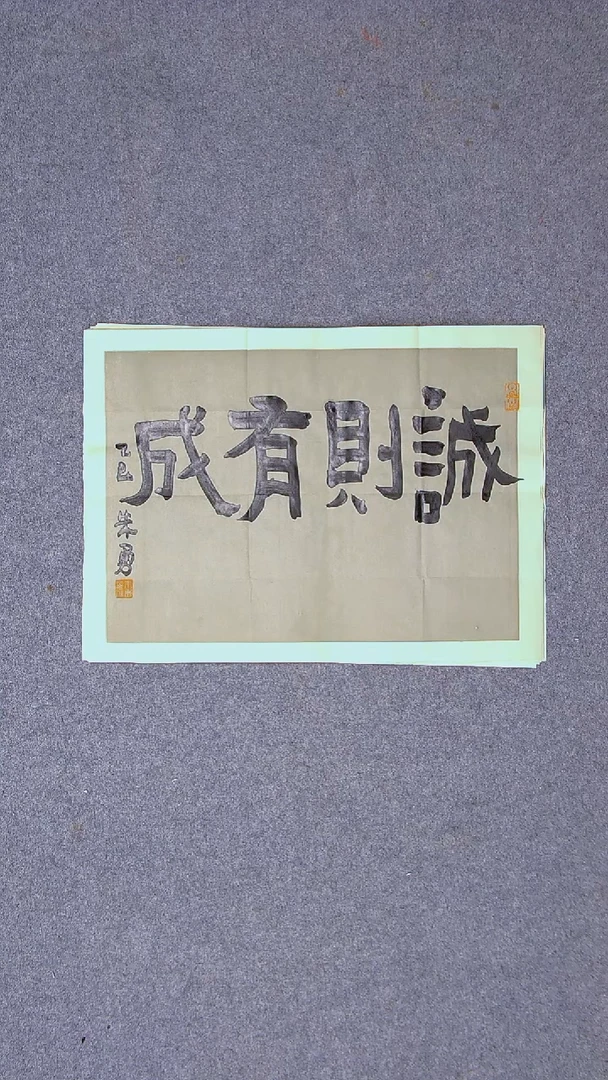 誠則有成
乙巳
朱勇